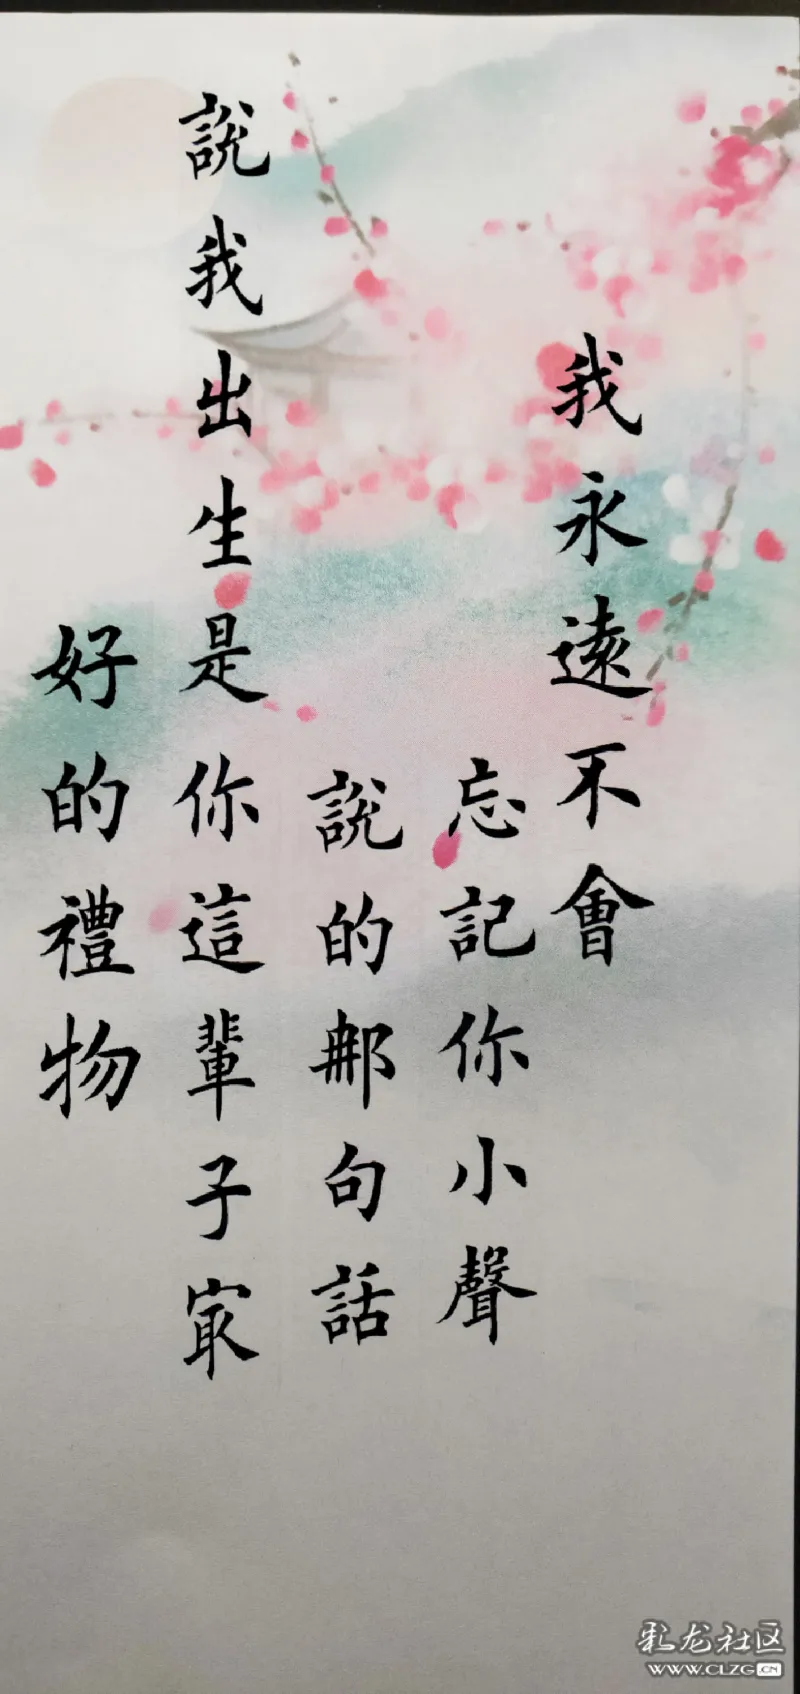 我永遠不會
忘記你小聲
說的那句話
說我出生是你這輩子冣
好的禮物
彩龙社区
WWW.CLZG.CN